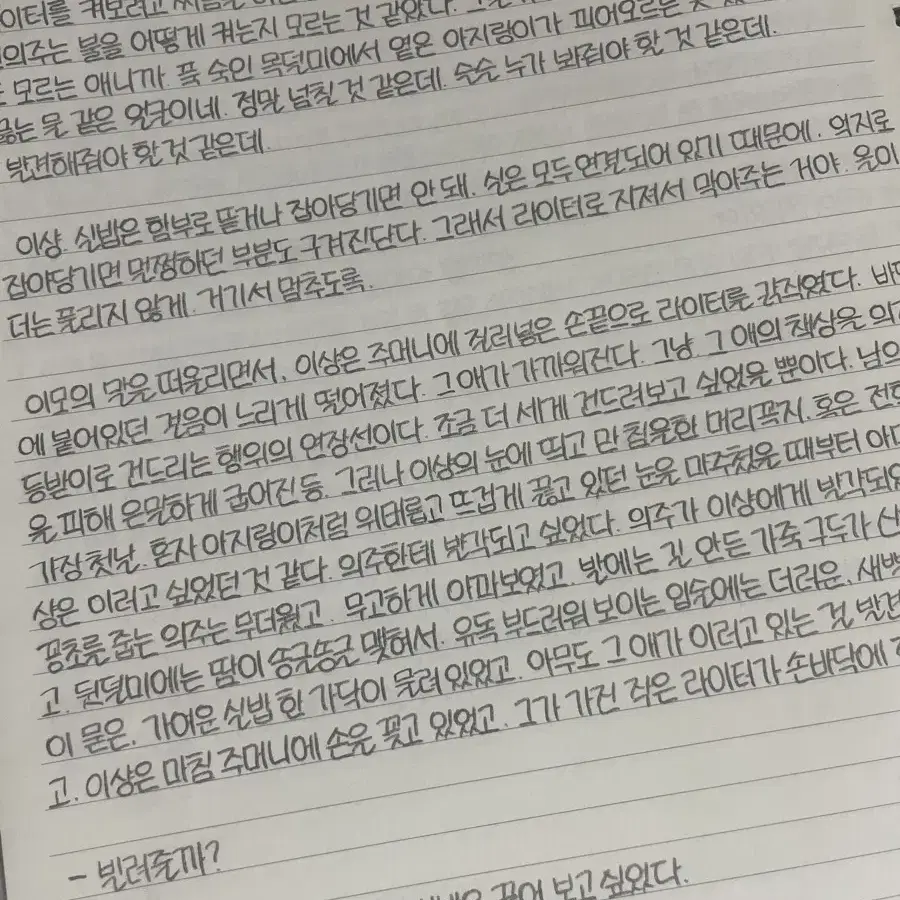 이터를 켜보려고
의주는 불을 어떻게 켜는지 모르는 것 같았다.
모르는 애니까. 푹 숙인 목덜미에서 옅은 아지랑이가 피어오르는
끓는 물 같은 얼굴이네. 정말 넘칠 것 같은데. 슬슬 누가 봐줘야 할 것 같은데.
발견해줘야 할 것 같은데.
이상. 실밥은 함부로 뜯거나 잡아당기면 안 돼. 실은 모두 연결되어 있기 때문에. 억지로
잡아당기면 멀쩡하던 부분도 구겨진단다. 그래서 라이터로 지져서 막아주는 거야. 올이
더는 풀리지 않게. 거기서 멈추도록.
이모의 말을 떠올리면서, 이상은 주머니에 찔러넣은 손끝으로 라이터를 긁적였다.
에 붙어있던 걸음이 느리게 떨어졌다. 그 애가 가까워진다. 그냥 그 애의 책상을
등받이로 건드리는 행위의 연장선이다. 조금 더 세게 건드려보고 싶었을 뿐이다. 남의
을 피해 은밀하게 굽어진 등. 그러나 이상의 눈에 띄고 만 침울한 머리꼭지. 혹은
가장 첫날. 혼자 아지랑이처럼 위태롭고 뜨겁게 끓고 있던 눈을 마주쳤을 때부터
상은 이러고 싶었던 것 같다. 의주한테 발각되고 싶었다. 의주가 이상에게
꽁초를 줍는 의주는 무더웠고. 무고하게 아파보였고. 발에는 길 안 든 가죽 구두가
고. 뒷덜미에는 땀이 송글송글 맺혀서. 유독 부드러워 보이는 입술에는 더러운,
이 묻은. 가여운 실밥 한 가닥이 물려 있었고. 아무도 그 애가 이러고 있는 걸
고. 이상은 마침 주머니에 손을 꽂고 있었고. 그가 가진 작은 라이터가 손바닥에
- 빌려줄까?
보고 싶었다.